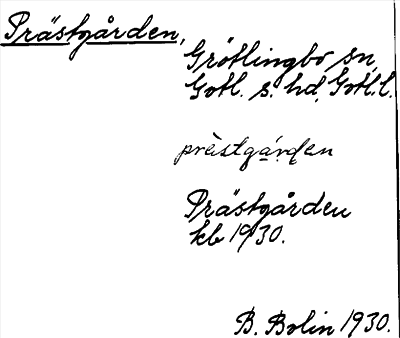 Prästgården,
Grötlingbo sn,
Gotl. s. hd, Gotl. l.
prèstgá̱rden
Prästgården
kb 1930.
B. Bolin 1930.